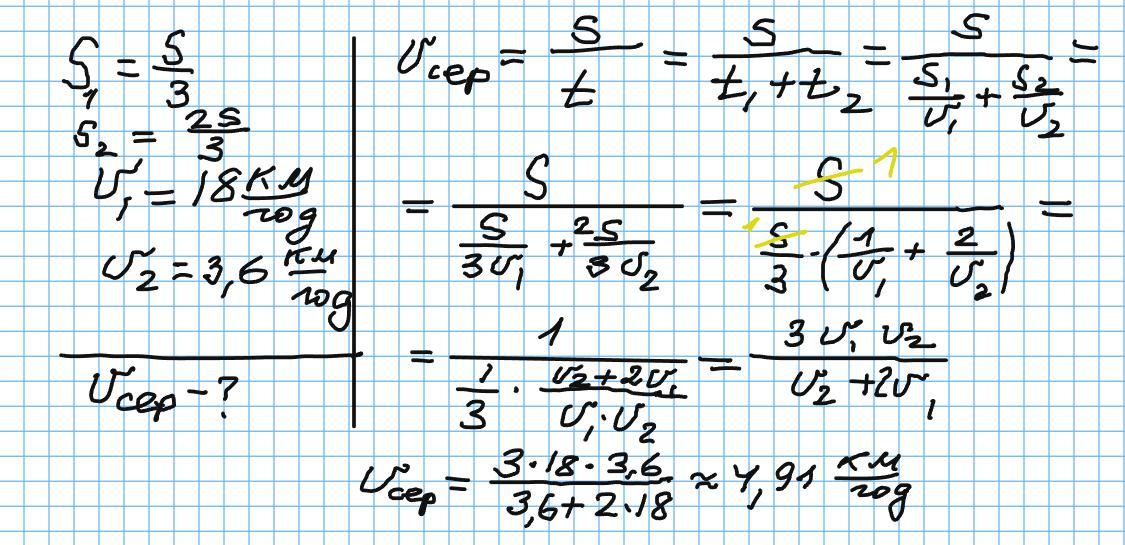 S₁ = S/3
S₂ = 2S/3
υ₁ = 18 км/год
υ₂ = 3,6 км/год
υсер - ?
υсер = S/t = S/(t₁ + t₂) = S/(S₁/υ₁ + S₂/υ₂) =
= S/(S/3υ₁ + 2S/3υ₂) = S 1/(1 S/3 · (1/υ₁ + 2/υ₂)) =
= 1/(1/3 · (υ₂ + 2υ₁)/(υ₁ · υ₂)) = 3υ₁υ₂/(υ₂ + 2υ₁)
υсер = (3 · 18 · 3,6)/(3,6 + 2 · 18) ≈ 4,91 км/год